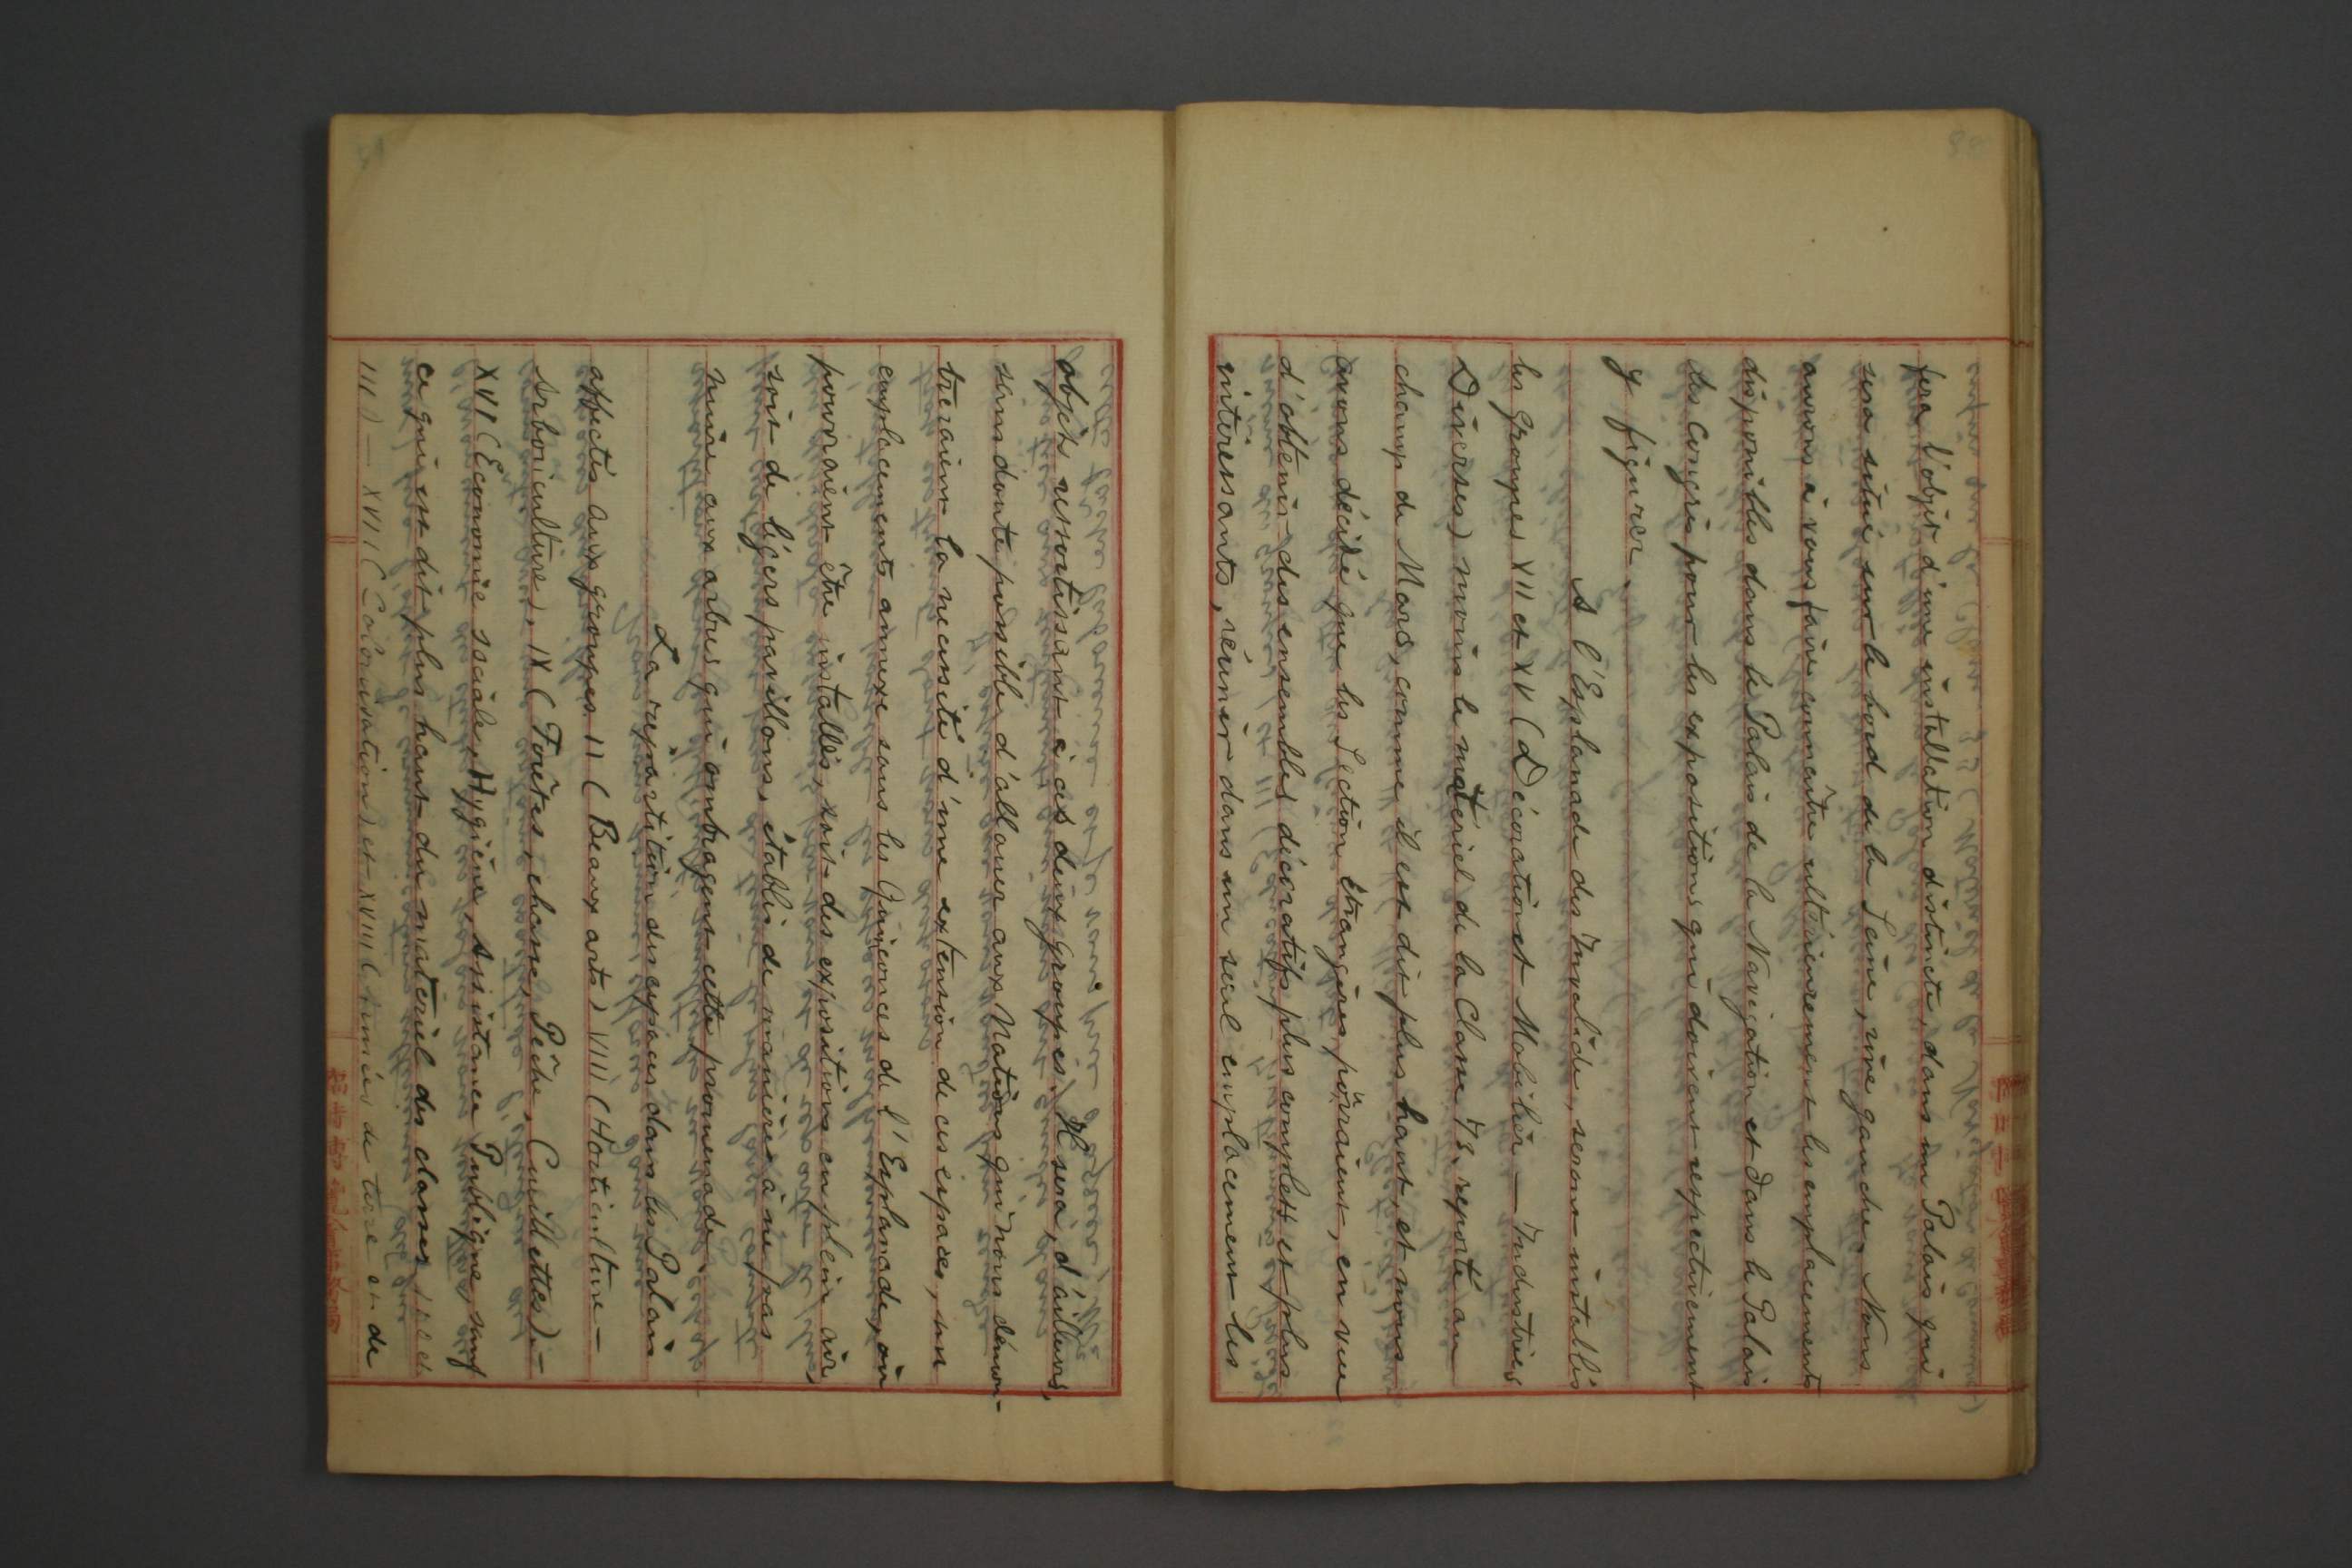 fera l'objet d'une installation distincte, dans un Palais qui
sera situé sur le bord de la Seine, rive gauche. Nous
aurons à vous faire connaître ultérieurement les emplacements
disponibles dans le Palais de la Navigation et dans le Palais
des Congrès pour les expositions qui doivent respectivement
y figurer.
A l'Esplanade des Invalides, seront installés
les groupes XII et XV (Décoration et Mobilier — Industries
Diverses) moins le matériel de la Classe 73, reporté au
champ de Mars, comme il est dit plus haut, et nous
avons décidé que les Section étrangères pourraient, en vue
d'obtenir des ensembles décoratifs plus complets et plus
intéressants, réunir dans un seul emplacement les
objets ressortissant à ces deux groupes. Il sera, d'ailleurs,
sans doute possible d'allouer aux Nations qui nous démon-
treraient la nécessité d'une extension de ces espaces, un
emplacements annexe sous les Quinconces de l'Esplanade, où
pourraient être installés, soit des expositions en plein air,
soit de légers pavillons, établis de manière à ne pas
nuire aux arbres qui ombragent cette promenade.
La répartition des espaces dans les Palais
affectés aux groupes II (Beaux arts) VIII (Horticulture —
Arboriculture), IX (Forêtes, chasse, Pêche, Cueillettes). —
XVI (Economie sociale, Hygiène, Assistance Publique, sauf
ce qui est dit plus haut du matériel des classes
111) — XVII (Colonisation) et XVIII (Armées de terre et de